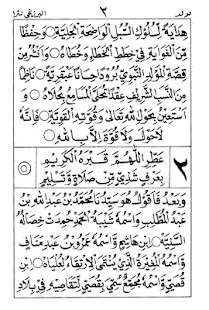 مولد ٢ البرزنجى نثرا
هِدَايَةً لِسُلُوكِ السُّبُلِ الْوَاضِحَةِ الْجَلِيَّةِ ۝ وَحِفْظًا
مِنَ الْغَوَايَةِ فِي خِطَطِ الْخَطَاءِ وَخُطَاهُ ۝ وَأَنْشُرُ مِنْ
قِصَّةِ الْمَوْلِدِ النَّبَوِيِّ بُرُودًا حِسَانًا عَبْقَرِيَّةً ۝ نَاظِمًا
مِنَ النَّسَبِ الشَّرِيفِ عِقْدًا تُحَلَّى الْمَسَامِعُ بِحُلَاهُ ۝ وَ
أَسْتَعِينُ بِحَوْلِ اللهِ تَعَالَى وَقُوَّتِهِ الْقَوِيَّةِ ۝ فَإِنَّهُ
لَاحَوْلَ وَلَا قُوَّةَ إِلَّا بِاللهِ ۝
٢ عَطِّرِ اللّٰهُمَّ قَبْرَهُ الْكَرِيمَ
بِعَرْفٍ شَذِيٍّ مِنْ صَلَاةٍ وَتَسْلِيمٍ
وَبَعْدُ فَأَقُولُ هُوَ سَيِّدُنَا مُحَمَّدُ بْنُ عَبْدِ اللهِ بْنِ
عَبْدِ الْمُطَّلِبِ وَاسْمُهُ شَيْبَةُ الْحَمْدِ حُمِدَتْ خِصَالُهُ
السَّنِيَّةُ ۝ ابْنِ هَاشِمٍ وَاسْمُهُ عَمْرُو بْنُ عَبْدِ مَنَافٍ
وَاسْمُهُ الْمُغِيرَةُ الَّذِي يُنْتَمَى الْاِرْتِقَاءُ لِعُلْيَاهُ ۝ ابْنِ
قُصَيٍّ وَاسْمُهُ مُجَمِّعٌ سُمِّيَ بِقُصَيٍّ لِتَقَاصِيهِ فِي بِلَادِ